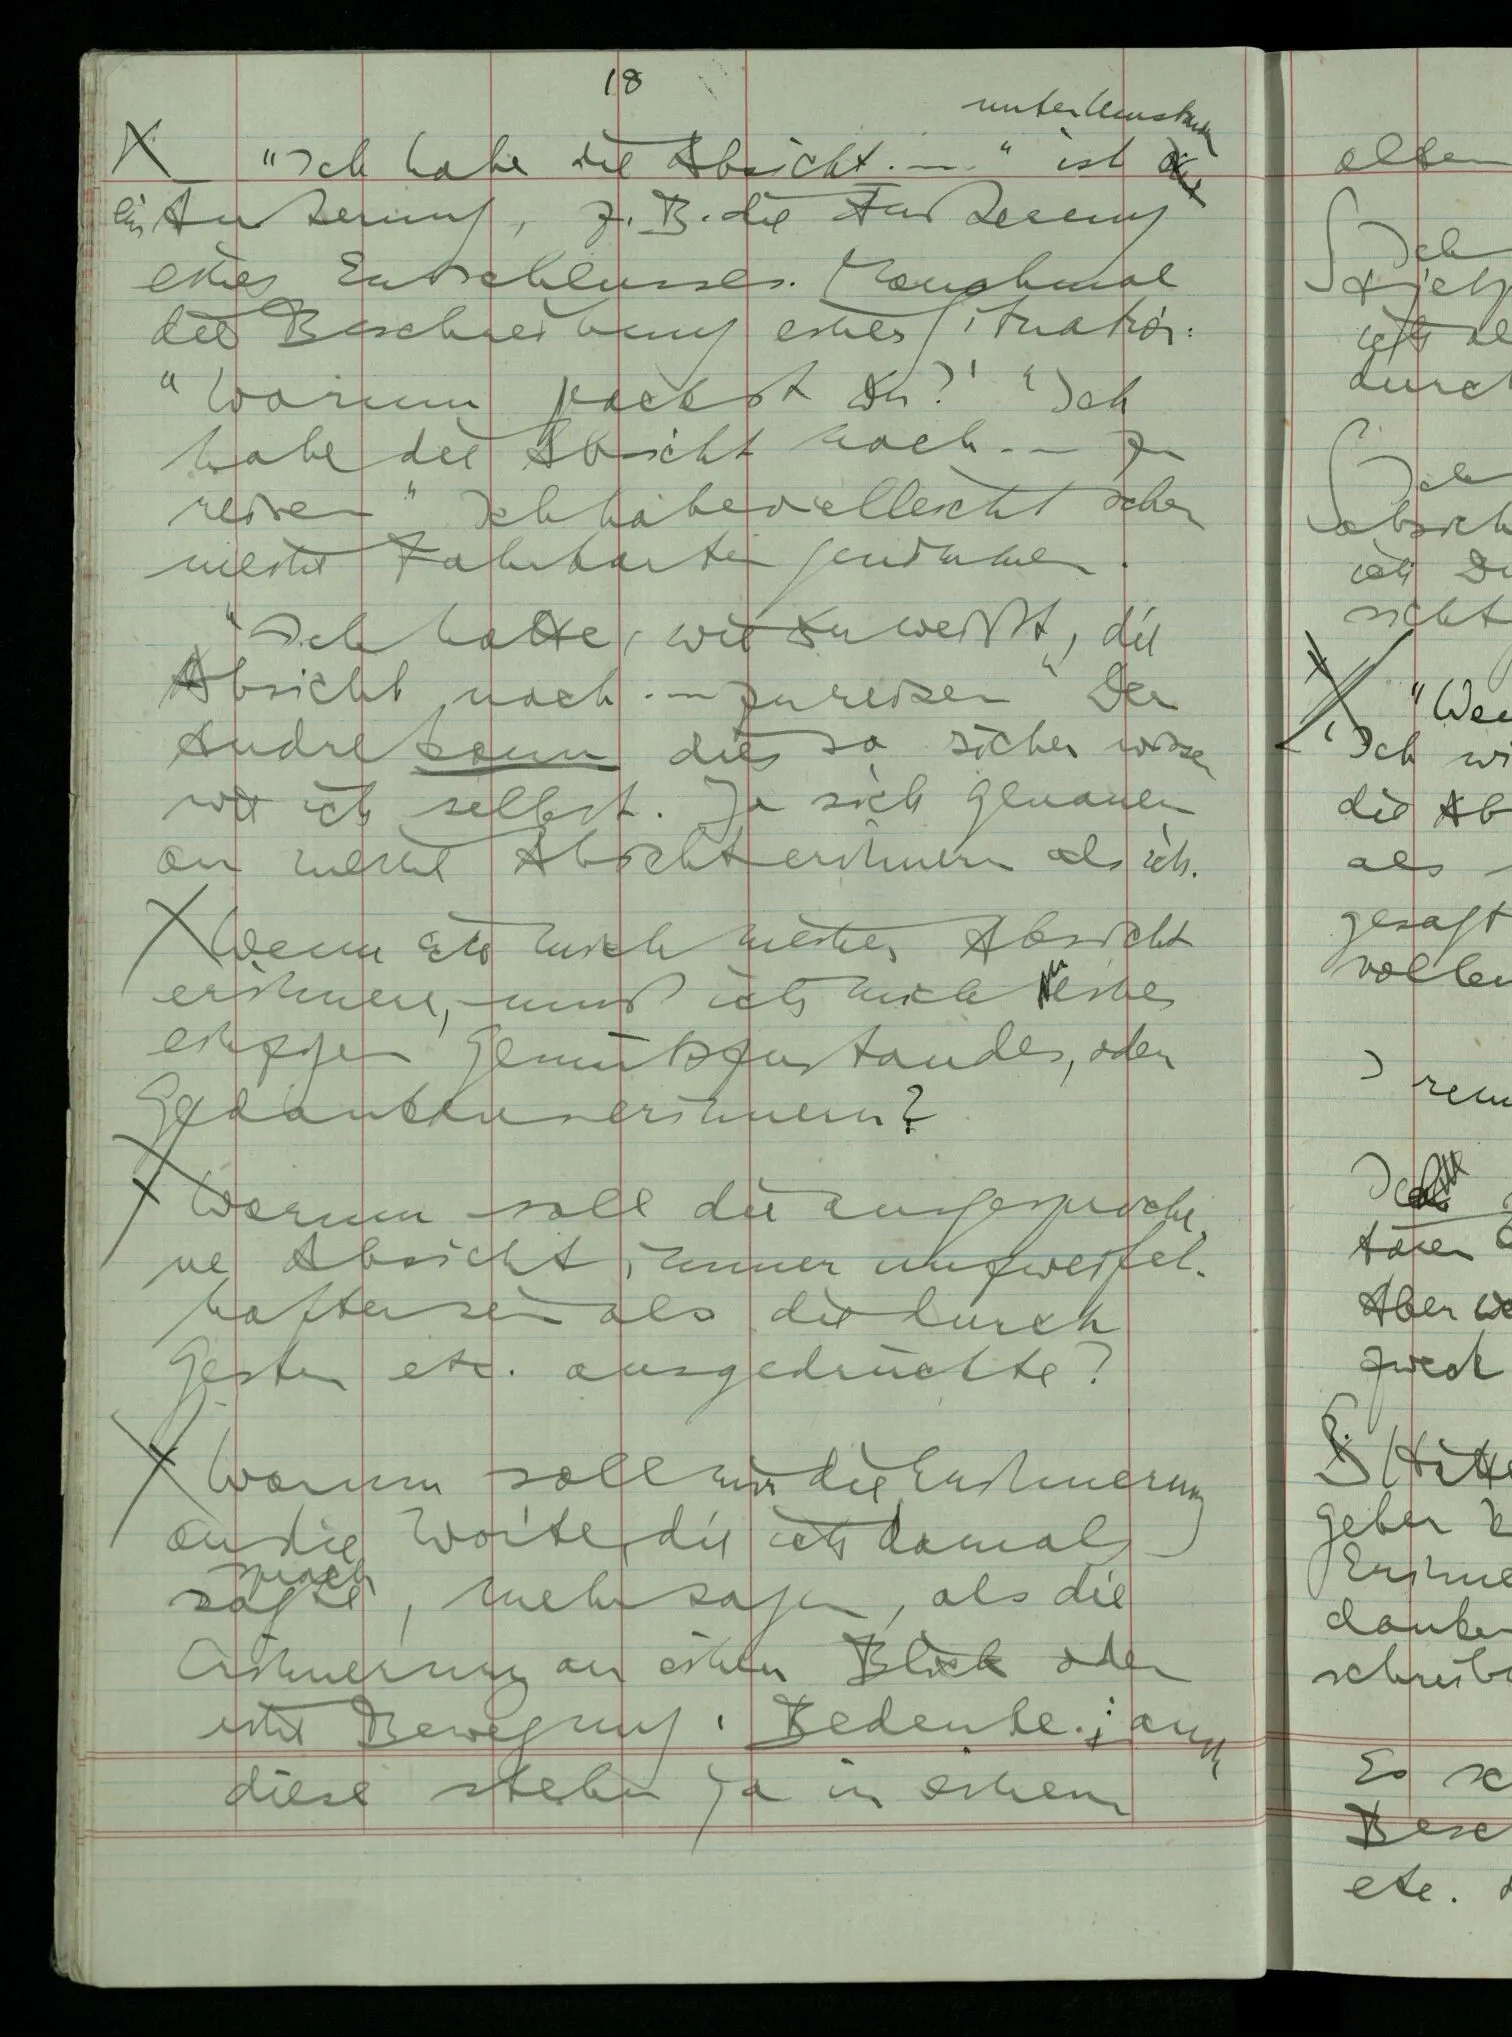 18
unter Umständen
"Ich habe die Absicht .–" ist
ein Äußerung, z.B. die Äußerung
eines Entschlusses. Manchmal
die Beschreibung einer Situation:
"Warum packst Du?" "Ich
habe die Absicht nach .– zu
reisen" Ich habe vielleicht schon
meine Fahrkarte genommen.
"Ich hatte, wie Du weißt, die
Absicht nach .– zu reisen" Der
Andre kann dies so sicher wissen
wie ich selbst. Ja sich genauer
an meine Absicht erinnern als ich.
Wenn ich mich meiner Absicht
erinnere, muß ich mich nun eines
einzigen Gemütszustandes, oder
Gedankens erinnern?
Warum soll die ausgesproche-
ne Absicht immer unzweifel-
hafter sein als die durch
Gesten etc. ausgedrückte?
Warum soll mir die Erinnerung
an die Worte, die ich damals
sprach
sagte, mehr sagen, als die
Erinnerung an einen Blick oder
eine Bewegung. Bedenke: auch
diese stehen ja in einem
alten
Ich
durch
Ich
absich
sicht
"Wen
'Ich wi
die Ab
als
gesagt
vollen
Aber we
zweck
geber
Erinne
danken
schreib
Es sc
Besc
etc. d